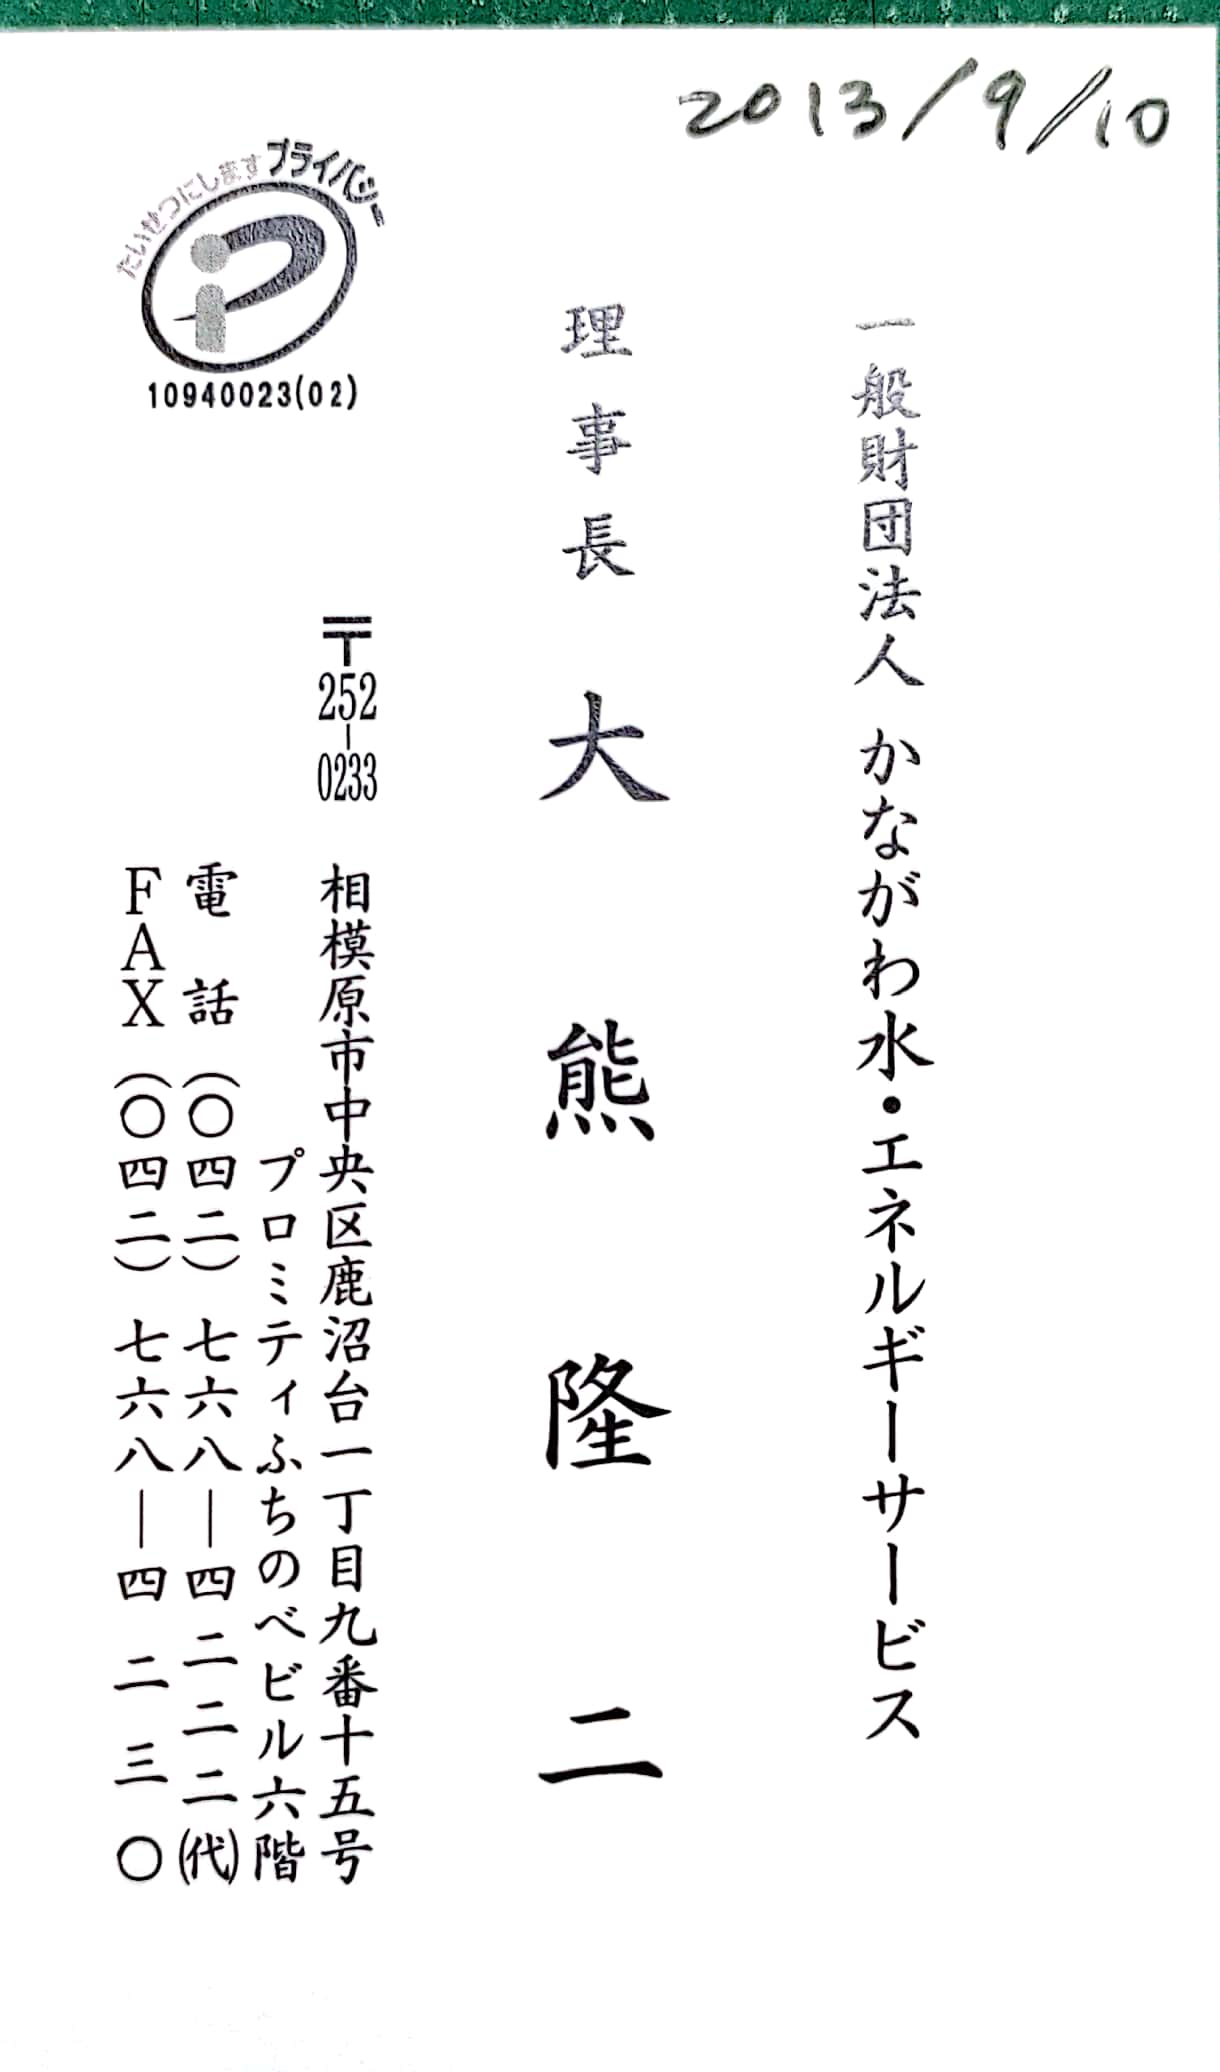 2013/9/10
一般財団法人 かながわ水・エネルギーサービス
理事長 大熊隆二
〒252-0233 相模原市中央区鹿沼台一丁目九番十五号
プロミティふちのべビル六階
電話(〇四二)七六八―四二二二(代)
FAX(〇四二)七六八―四二三〇
たいせつにしますプライバシー
10940023(02)